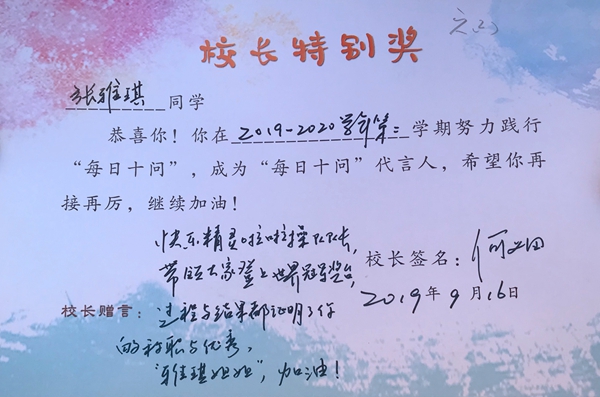 校长特别奖
张雅琪同学
恭喜你！你在2019-2020学年第二学期努力践行
“每日十问”，成为“每日十问”代言人，希望你再
接再厉，继续加油！
校长签名：
2019年9月16日
校长赠言：
快乐精灵啦啦操队队长，
带领大家登上世界冠军奖台，
过程与结果都证明了你
的称职与优秀，
“雅琪姐姐”，加油！